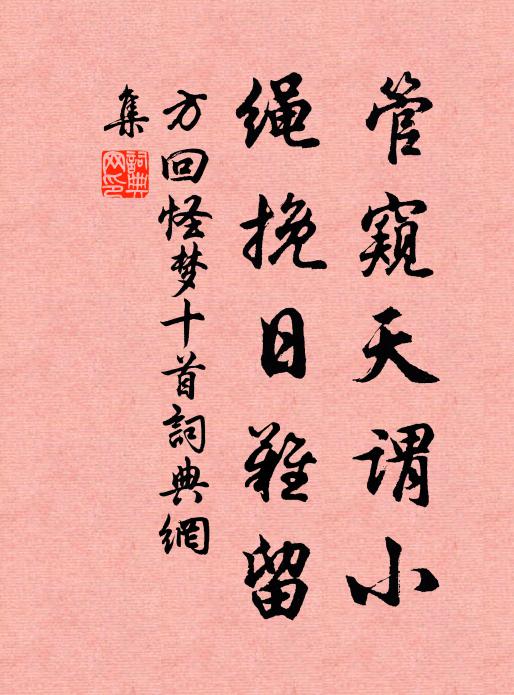 管窥天谓小
绳挽日难留
方回怪梦十首詞典網
集
詞典网印